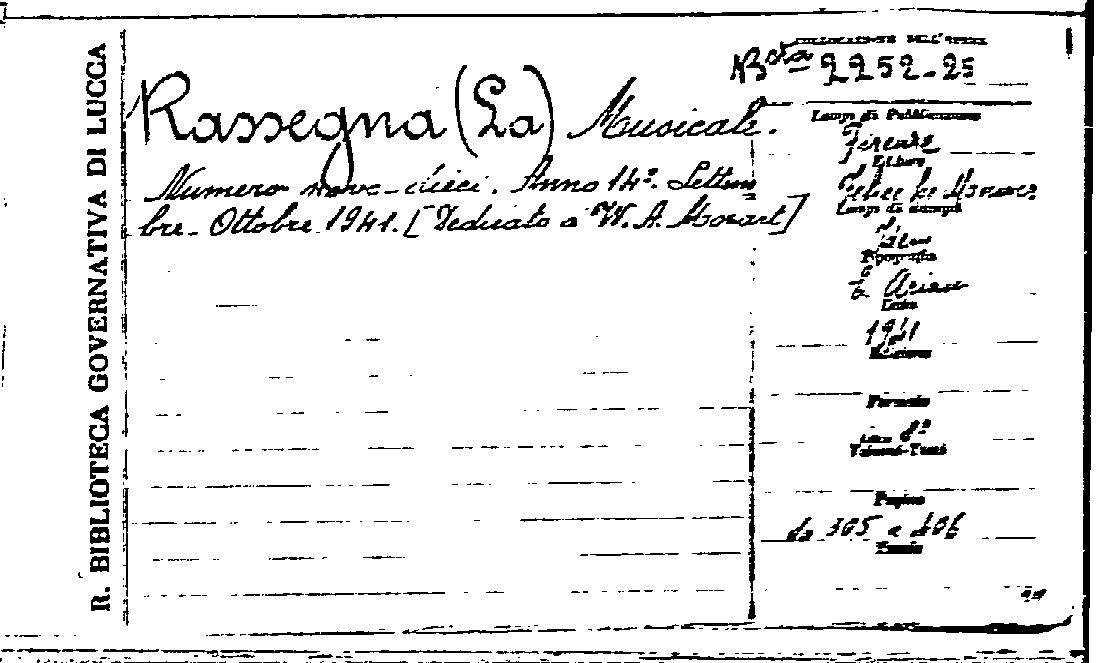 R. BIBLIOTECA GOVERNATIVA DI LUCCA
COLLOCAZIONE DELL'OPERA
2252-25
Rassegna (La) Musicale.
Numero nove-dieci. Anno 14º. Settem
bre-Ottobre 1941. [Dedicato a W. A. Mozart]
Luogo di Pubblicazione
Firenze
Editore
Felice Le Monnier
Luogo di stampa
Tipografia
E. Ariani
Data
1941
Edizione
Formato
8º
Volumi-Tomi
Pagine
da 305 a 406